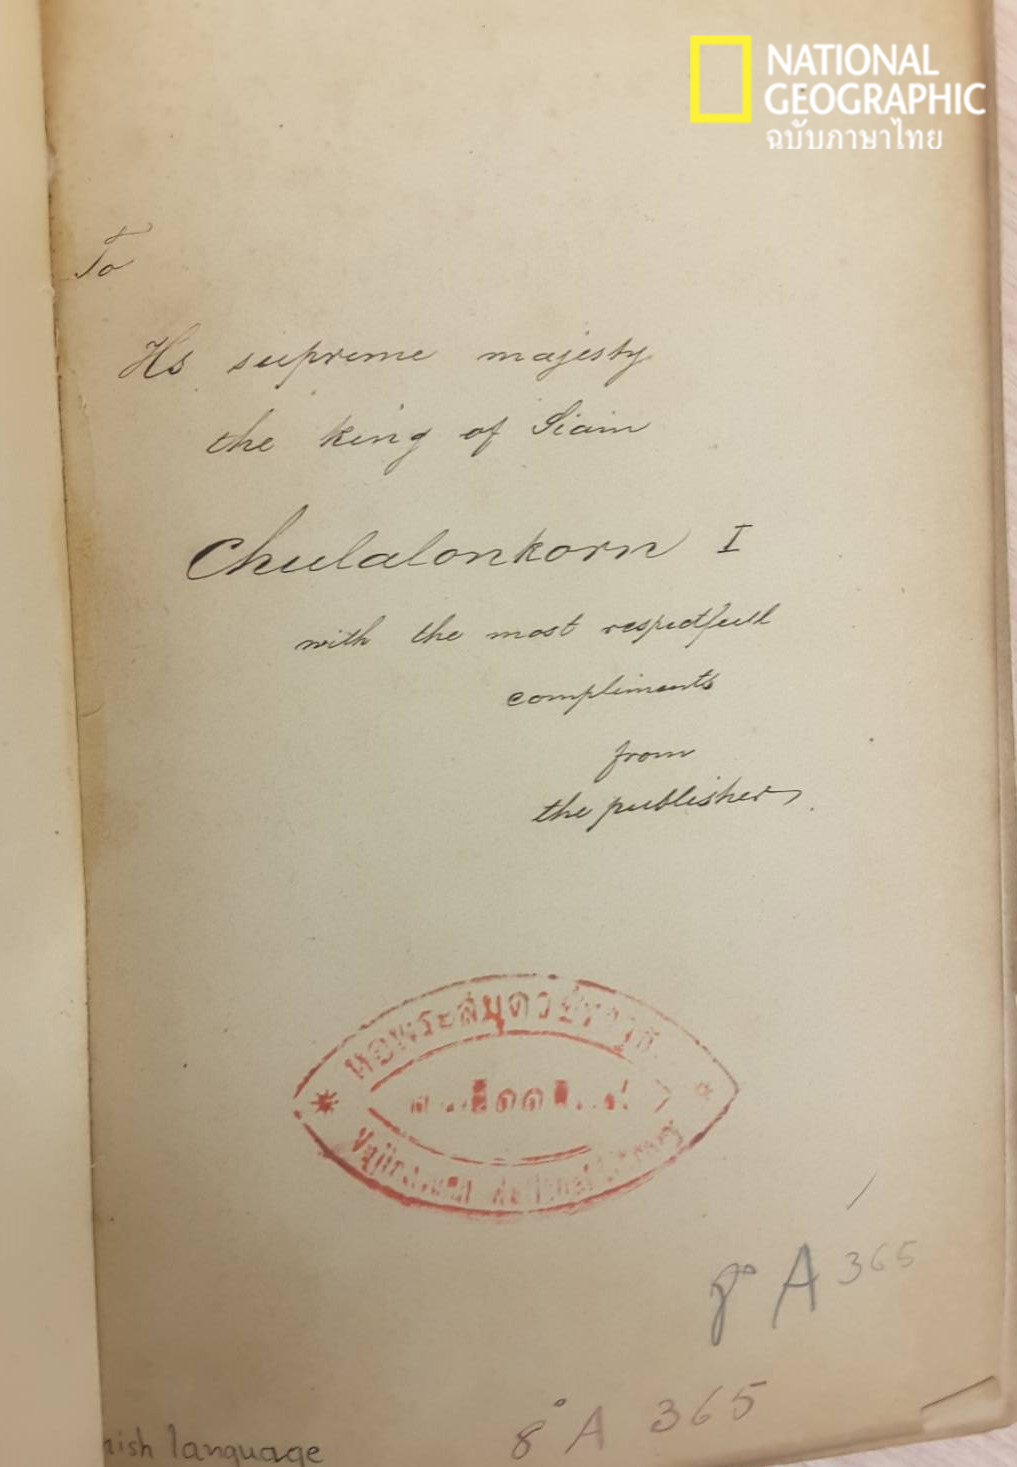 NATIONAL
GEOGRAPHIC
ฉบับภาษาไทย
To
His supreme majesty
the king of Siam
Chulalonkorn I
with the most respectfull
compliments
from
the publisher
หอพระสมุดวชิราวุธ
National Library
8° A 365
8° A 365
language